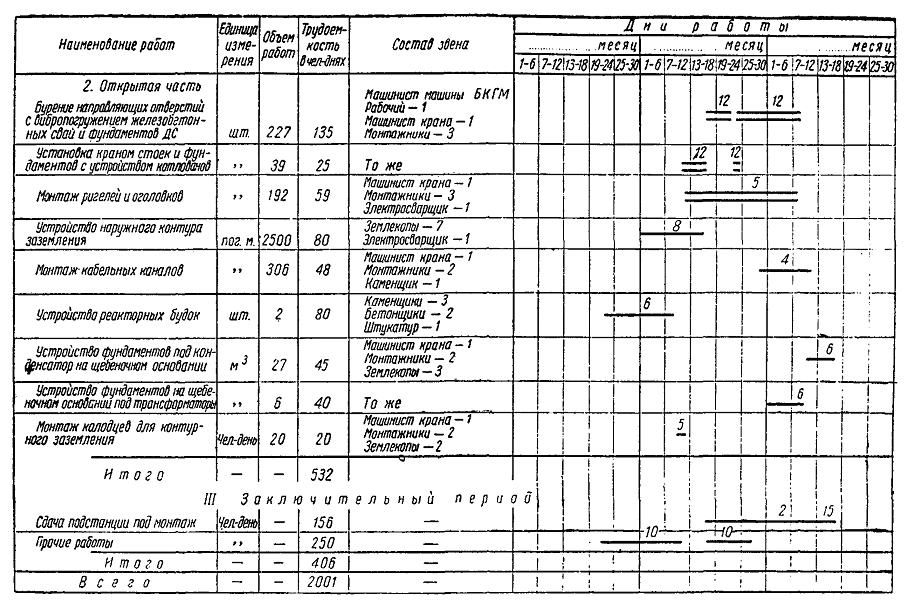 Наименование работ
Единица изме- рения
Объем работ
Трудоем- кость в чел-днях
Состав звена
Дни работы
месяц месяц месяц
1-6 7-12 13-18 19-24 25-30 1-6 7-12 13-18 19-24 25-30 1-6 7-12 13-18 19-24 25-30
2. Открытая часть
Бурение направляющих отверстий
с вибропогружением железобетон-
ных свай и фундаментов ДС
шт. 227 135
Машинист машины БКГМ
Рабочий — 1
Машинист крана — 1
Монтажники — 3
12 12
Установка краном стоек и фун-
даментов с устройством котлованов
„ 39 25 То же
12 12
Монтаж ригелей и оголовков
„ 192 59
Машинист крана — 1
Монтажники — 3
Электросварщик — 1
5
Устройство наружного контура
заземления
пог. м. 2500 80
Землекопы — 7
Электросварщик — 1
8
Монтаж кабельных каналов
„ 306 48
Машинист крана — 1
Монтажники — 2
Каменщик — 1
4
Устройство реакторных будок
шт. 2 80
Каменщики — 3
Бетонщики — 2
Штукатур — 1
6
Устройство фундаментов под кон-
денсатор на щебеночном основании
м³ 27 45
Машинист крана — 1
Монтажники — 2
Землекопы — 3
6
Устройство фундаментов на щебе-
ночном основании под трансформаторы
„ 6 40 То же
6
Монтаж колодцев для контур-
ного заземления
Чел-день 20 20
Машинист крана — 1
Монтажники — 2
Землекопы — 2
5
Итого — — 532
III Заключительный период
Сдача подстанции под монтаж Чел-день — 156 — 2 15
Прочие работы „ — 250 — 10 10
Итого — — 406 —
Всего — — 2001 —